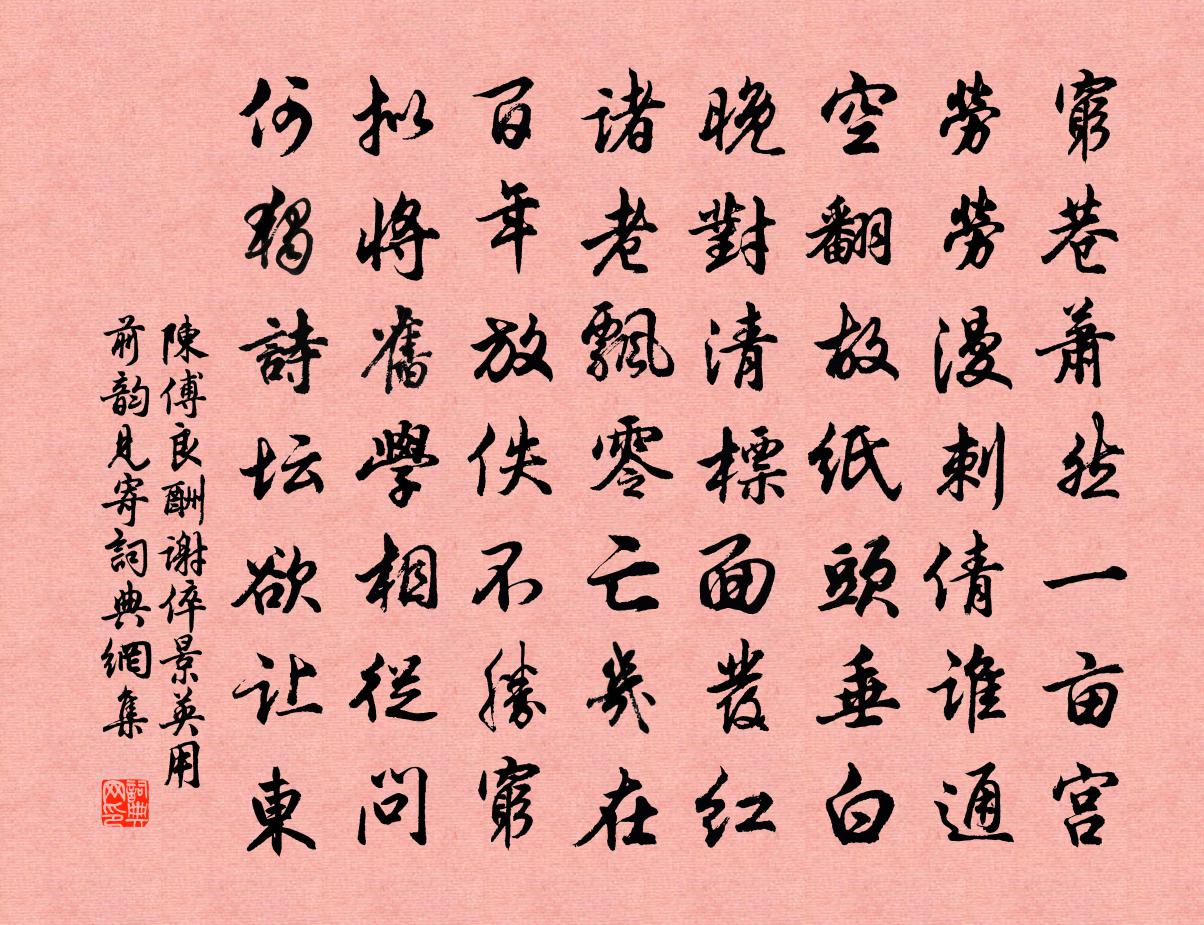 窮巷蕭然一亩宫
勞勞漫刺倩谁通
空翻故紙頭垂白
晚對清標面發红
诸老飄零亡幾在
百年放佚不勝窮
拟將舊學相從问
何獨詩坛欲让東
陳傅良酬谢倅景英用
前韵見寄詞典網集
詞典
网印